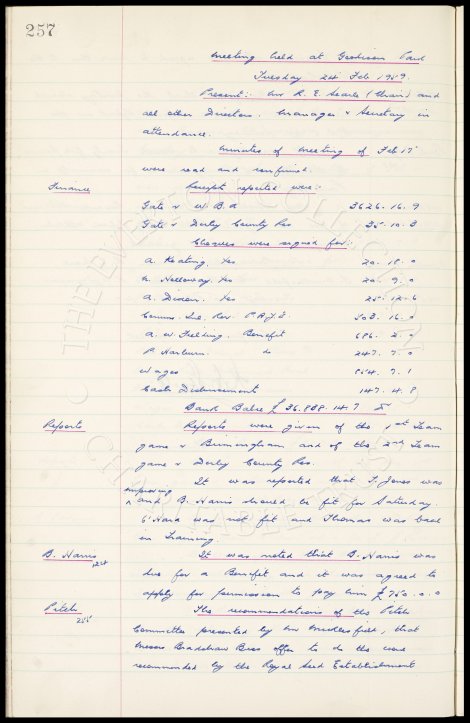 257
Meeting held at Goodison Park
Tuesday 24 Feb 1959.
Present:- Mr R. E. Searle (Chair) and
all other Directors. Manager & Secretary in
attendance.
Minutes of Meeting of Feb 17
were read and confirmed.
Finance
Receipts reported were:-
Gate v W. B. A 3626. 16. 9
Gate v Derby County Res 35. 10. 3
Cheques were signed for:-
A. Keating. Yes 20. 18. 0
Holloway. Yes 20. 9. 0
A. Dixon. Yes 25. 12. 6
Comm. Inl. Rev. 508. 16. 0
A. W. Fielding. Benefit 686.
P. Harburn. do 247. 7. 0
Wages 7. 1
Cash Disbursement 147. 4. 8
Bank Balce £36.838. 14. 7
Reports
Reports were given of the 1st Team
game v Birmingham and of the 2nd Team
game v Derby County Res.
It was reported that T. Jones was
improving
and B. Harris should be fit for Saturday.
O'Hara was not fit and Thomas was back
in Training.
B. Harris
It was noted that B. Harris was
due for a Benefit and it was agreed to
apply for permission to pay him £750. 0. 0
Pitch
255
The recommendations of the Pitch
Committee presented by Mr Micklesfield, that
Messrs Bradshaw Bros offer to do the work
recommended by the Royal Seed Establishment
THE EVERTON COLLECTION
CHARITABLE TRUST